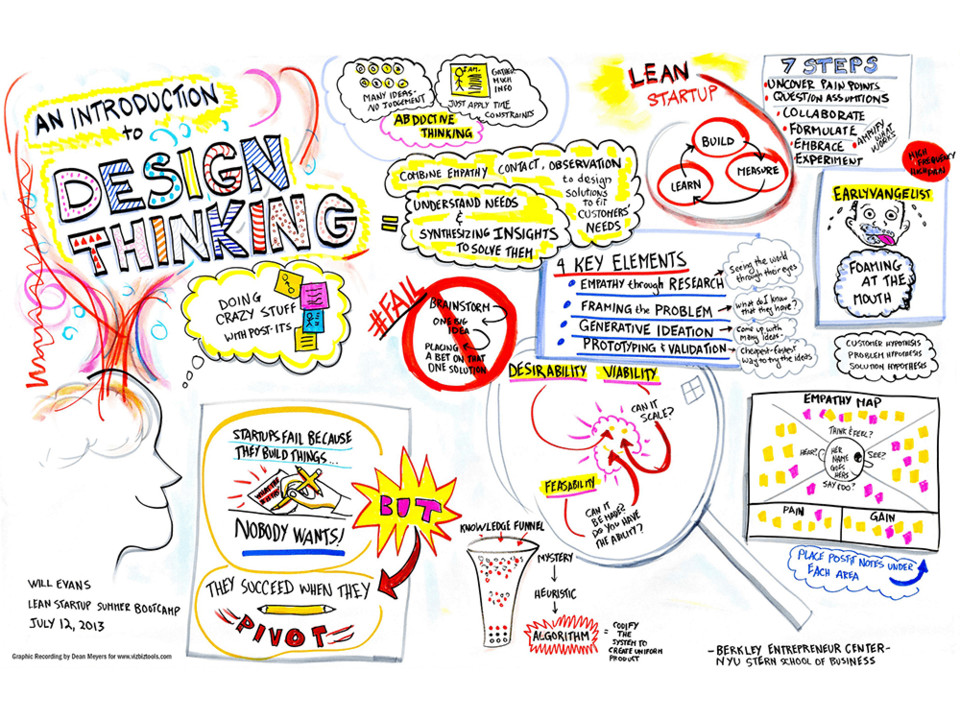 AN INTRODUCTION
to
DESIGN
THINKING
=
MANY IDEAS-
NO JUDGEMENT
GATHER
MUCH
INFO
JUST APPLY TIME
CONSTRAINTS
ABDUCTIVE
THINKING
COMBINE EMPATHY, CONTACT, OBSERVATION
to design
solutions
to fit
CUSTOMERS'
NEEDS
UNDERSTAND NEEDS
&
SYNTHESIZING INSIGHTS
TO SOLVE THEM
LEAN
STARTUP
BUILD
MEASURE
LEARN
7 STEPS
UNCOVER PAIN POINTS
QUESTION ASSUMPTIONS
COLLABORATE
FORMULATE
EMBRACE
EXPERIMENT
AMPLIFY
WHAT
WORKS
HIGH FREQUENCY
EARLYVANGELIST
FOAMING
AT THE
MOUTH
CUSTOMER HYPOTHESIS
PROBLEM HYPOTHESIS
SOLUTION HYPOTHESIS
DOING
CRAZY STUFF
WITH POST-ITS
#FAIL
BRAINSTORM
ONE BIG
IDEA
PLACING
A BET ON THAT
ONE SOLUTION
4 KEY ELEMENTS
EMPATHY through RESEARCH
Seeing the world
through their eyes
FRAMING the PROBLEM
What do I know
that they have?
GENERATIVE IDEATION
Come up with
many ideas-
PROTOTYPING & VALIDATION
Cheapest-fastest
way to try the ideas
DESIRABILITY
VIABILITY
CAN IT
SCALE?
FEASABILITY
CAN IT
BE MADE?
DO YOU HAVE
THE ABILITY?
EMPATHY MAP
THINK & FEEL?
HEAR?
HER
NAME
GOES
HERE
SEE?
SAY/DO?
PAIN
GAIN
PLACE POSTIT NOTES UNDER
EACH AREA
STARTUPS FAIL BECAUSE
THEY BUILD THINGS...
NOBODY WANTS!
BUT
THEY SUCCEED WHEN THEY
PIVOT
KNOWLEDGE FUNNEL
MYSTERY
HEURISTIC
ALGORITHM
= CODIFY
THE
SYSTEM TO
CREATE UNIFORM
PRODUCT
WILL EVANS
LEAN STARTUP SUMMER BOOTCAMP
JULY 12, 2013
Graphic Recording by Dean Meyers for www.vizbiztools.com
-BERKLEY ENTREPRENEUR CENTER-
NYU STERN SCHOOL OF BUSINESS